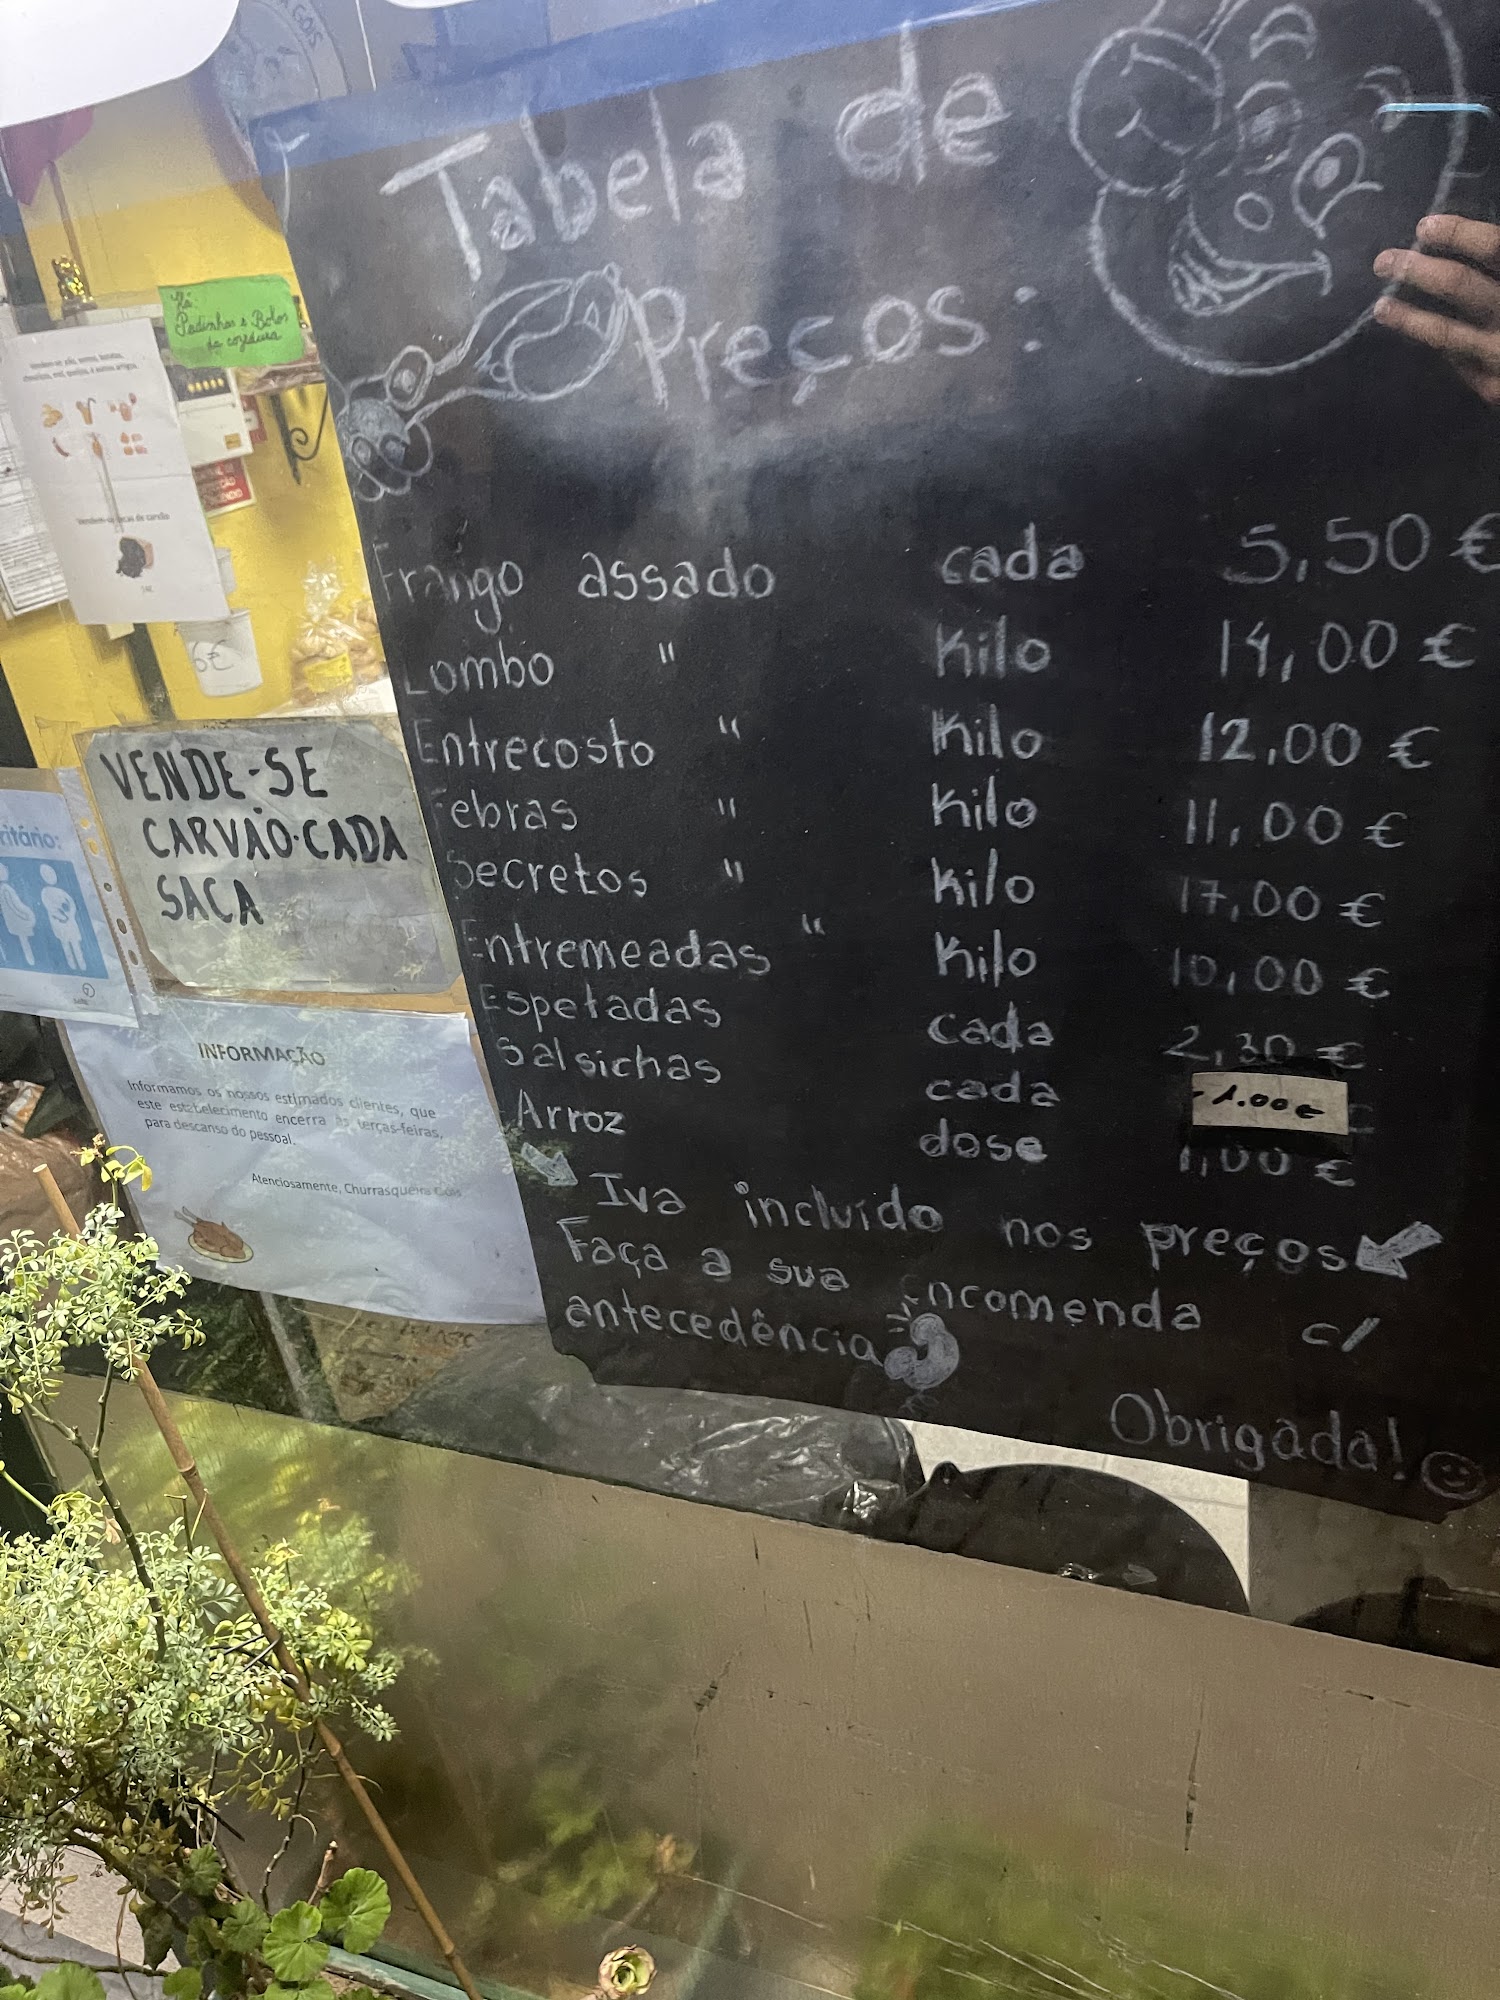 Tabela de
Preços:
Frango assado cada 5,50 €
Lombo " Kilo 14,00 €
Entrecosto " Kilo 12,00 €
Febras " Kilo 11,00 €
Secretos " Kilo 17,00 €
Entremeadas " Kilo 10,00 €
Espetadas cada 2,30 €
Salsichas cada 1.00€
Arroz dose 1,00 €
Iva incluído nos preços
Faça a sua encomenda c/
antecedência
Obrigada!
Há
Padinhas e Bolos
da cozedura
Vendem-se sacas de carvão
6€
VENDE-SE
CARVÃO·CADA
SACA
ritário:
INFORMAÇÃO
Informamos os nossos estimados clientes, que
este estabelecimento encerra às terças-feiras,
para descanso do pessoal.
Atenciosamente, Churrasqueira Góis